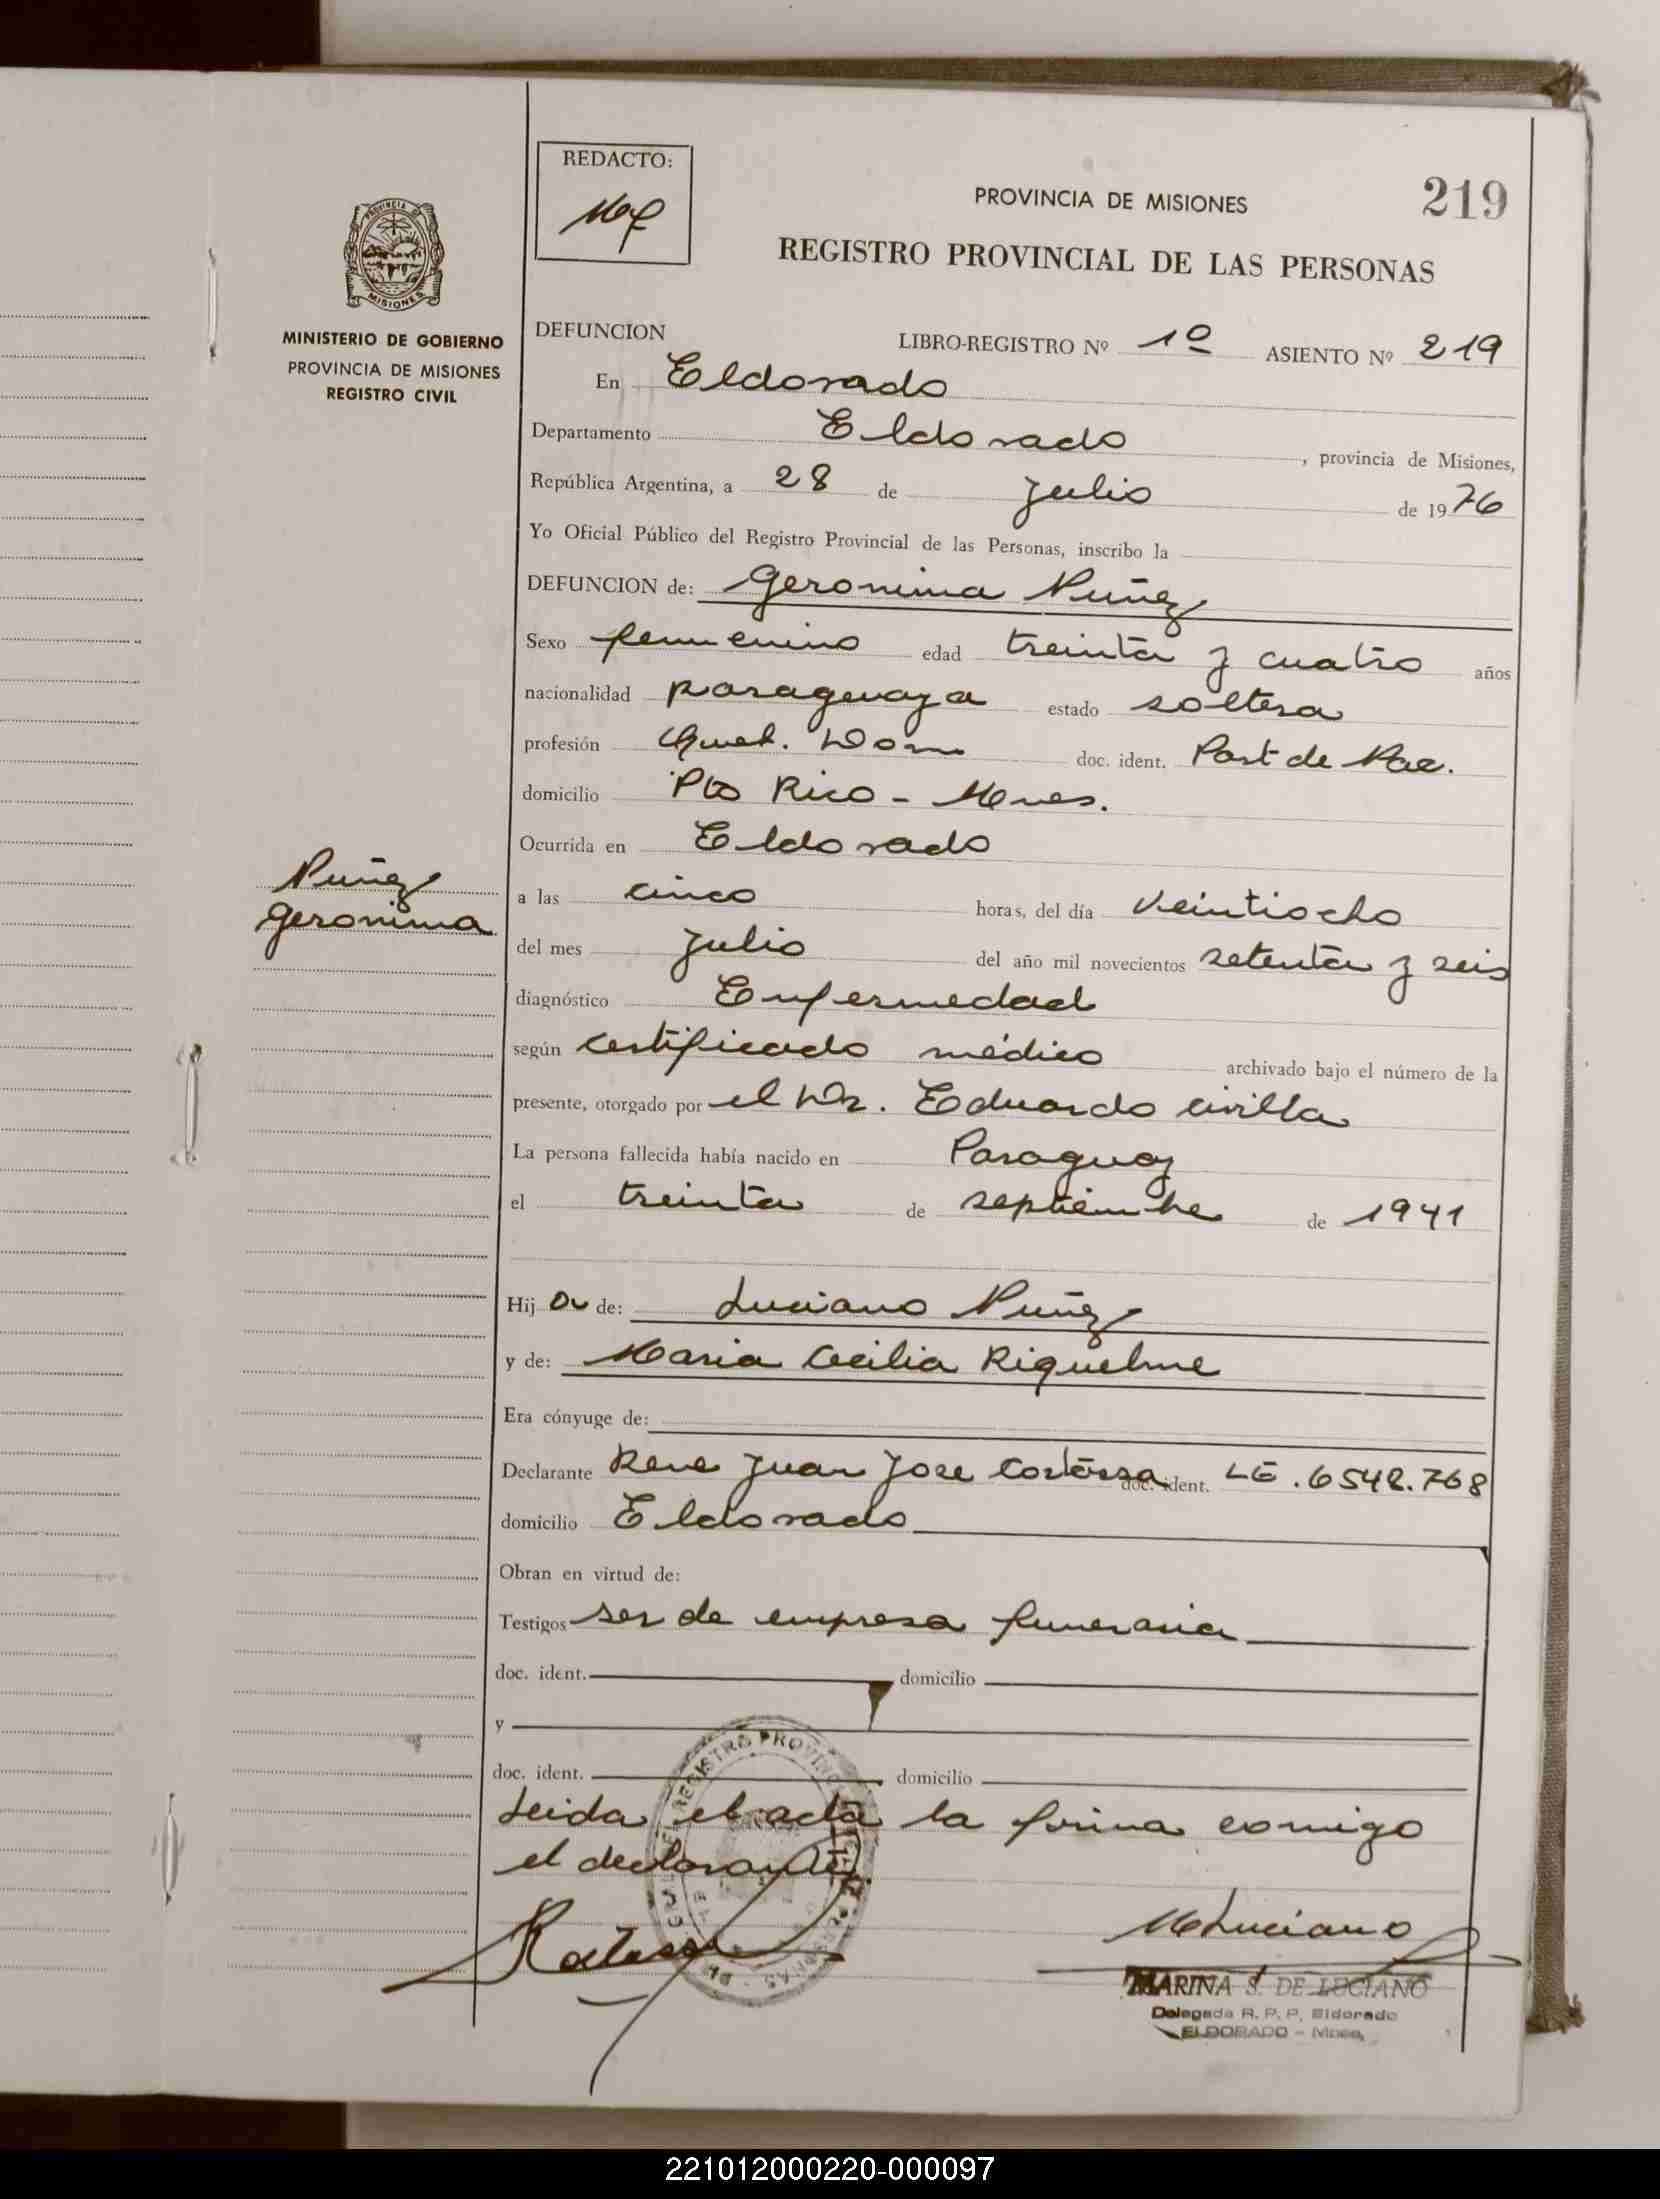 REDACTO:
PROVINCIA DE MISIONES
219
REGISTRO PROVINCIAL DE LAS PERSONAS
PROVINCIA DE
MISIONES
MINISTERIO DE GOBIERNO
PROVINCIA DE MISIONES
REGISTRO CIVIL
DEFUNCION LIBRO-REGISTRO Nº 1º ASIENTO Nº 219
En Eldorado
Departamento Eldorado, provincia de Misiones,
República Argentina, a 28 de Julio de 1976
Yo Oficial Público del Registro Provincial de las Personas, inscribo la
DEFUNCION de: Geronima Nuñez
Sexo femenino edad treinta y cuatro años
nacionalidad paraguaya estado soltera
profesión Queh. Dom doc. ident. Part de Nac.
domicilio Pto Rico - Mnes.
Ocurrida en Eldorado
Nuñez
Geronima
a las cinco horas, del día veintiocho
del mes Julio del año mil novecientos setenta y seis
diagnóstico Enfermedad
según certificado médico archivado bajo el número de la
presente, otorgado por el Dr. Eduardo Civilla
La persona fallecida había nacido en Paraguay
el treinta de septiembre de 1941
Hija de: Luciano Nuñez
y de: Maria Cecilia Riquelme
Era cónyuge de:
Declarante Rene Juan Jose doc. ident. LE.6548.768
domicilio Eldorado
Obran en virtud de:
Testigos ser de empresa funeraria
doc. ident. domicilio
y
doc. ident. domicilio
Leida el acta la firma comigo
el declarante
MLuciano
MARINA S. DE LUCIANO
Delegada R. P. P. Eldorado
ELDORADO - Mnes.
221012000220-000097